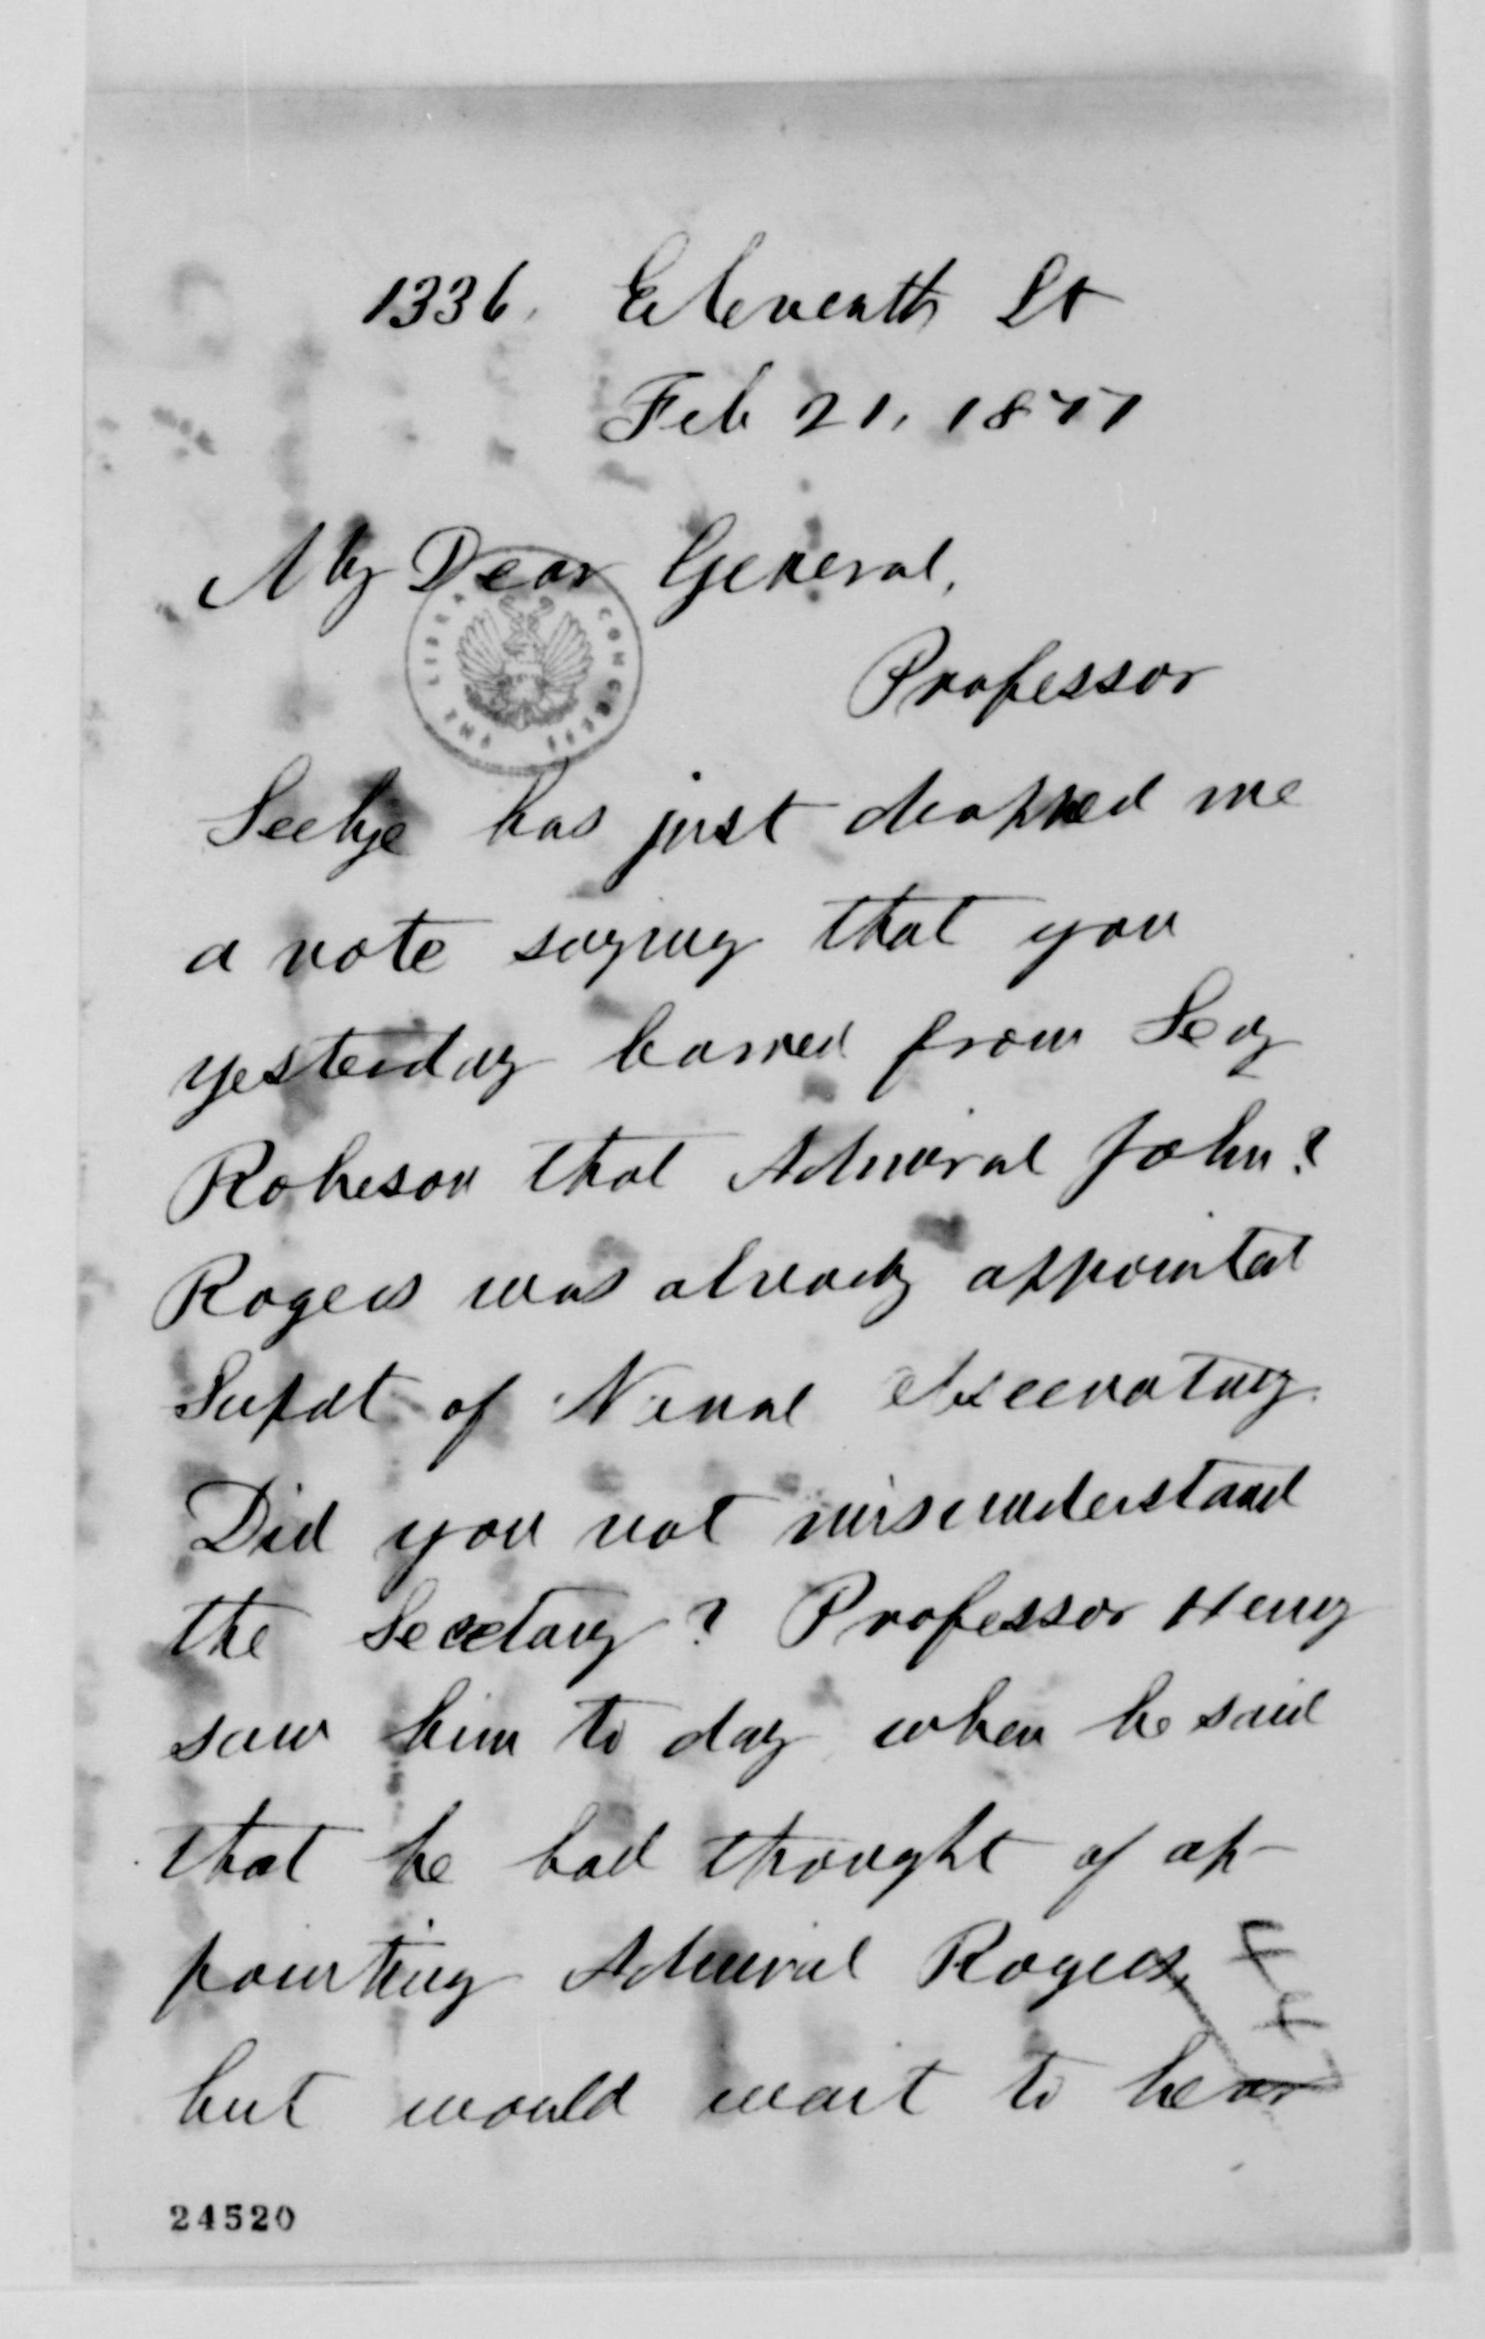 1336. Eleventh St
Feb 21, 1877
My Dear General,
THE LIBRARY CONGRESS
Professor
Seelye has just dropped me
a note saying that you
yesterday learned from Secy
Robeson that Admiral John?
Rogers was already appointed
Supdt of Naval Observatory.
Did you not misunderstand
the Secetary? Professor Henry
saw him to day when he said
that he had thought of ap-
pointing Admiral Rogers,
but would wait to hear
24520